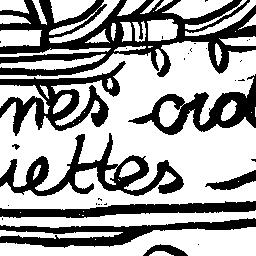 nes ord
iettes